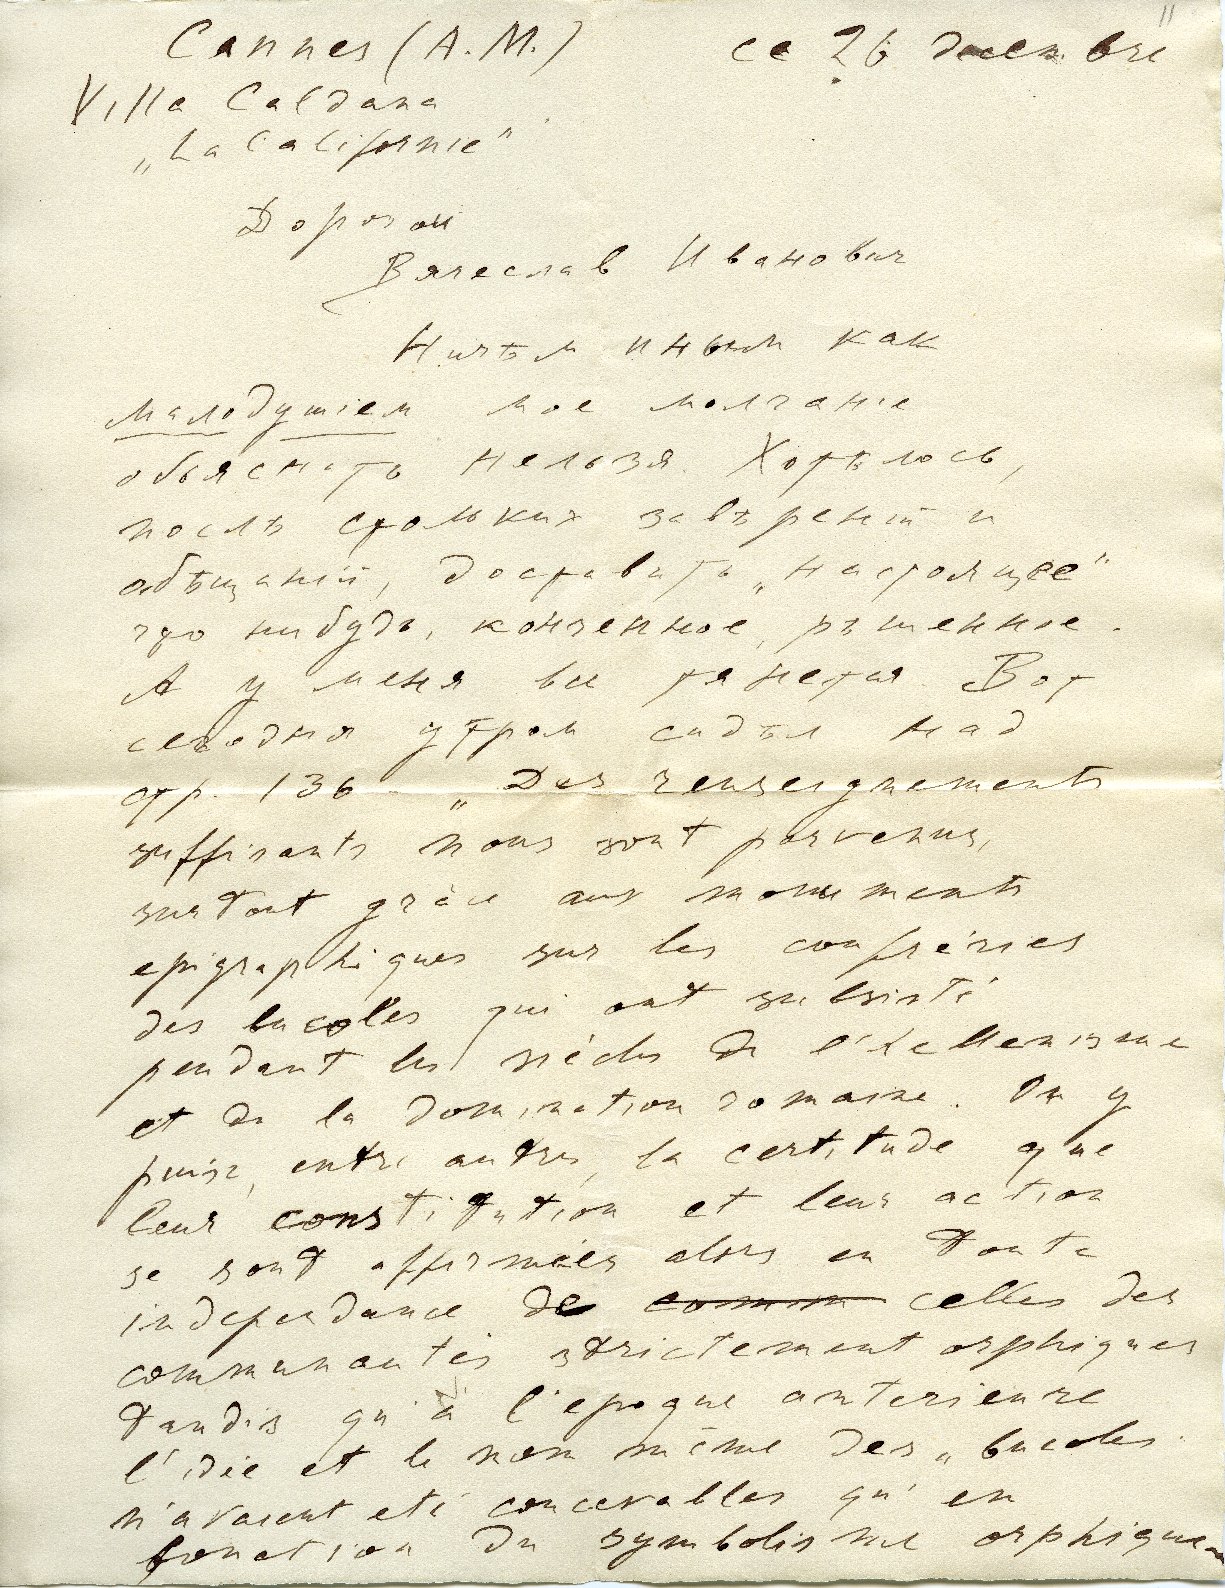 Cannes (A.M.) ce 26 decembre
Villa Caldana
„La Californie"
Дорогой
Вячеслав Иванович
Ничѣм иным как
малодушiем мое молчанiе
объяснить нельзя. Хотѣлось,
послѣ стольких завѣренiй и
обѣщанiй, доставить „настоящее"
что нибудь, конченное, рѣшенное.
А у меня все тянется. Вот
сегодня утром сидѣл над
стр. 136 „Des renseignements
suffisants nous sont parvenus,
surtout grâce aux monuments
epigraphiques sur les confréries
des bucoles qui ont subsisté
pendant les siècles de l'hellenisme
et de la domination romaine. On y
puise, entre autres, la certitude que
leur constitution et leur action
se sont affirmées alors en toute
independance de comm celles des
communautés strictement orphiques
tandis qu'à l'epoque anterieure
l'idée et le nom même des „bucoles
n'avaient eté concevables qu'en
fonction du symbolisme orphique